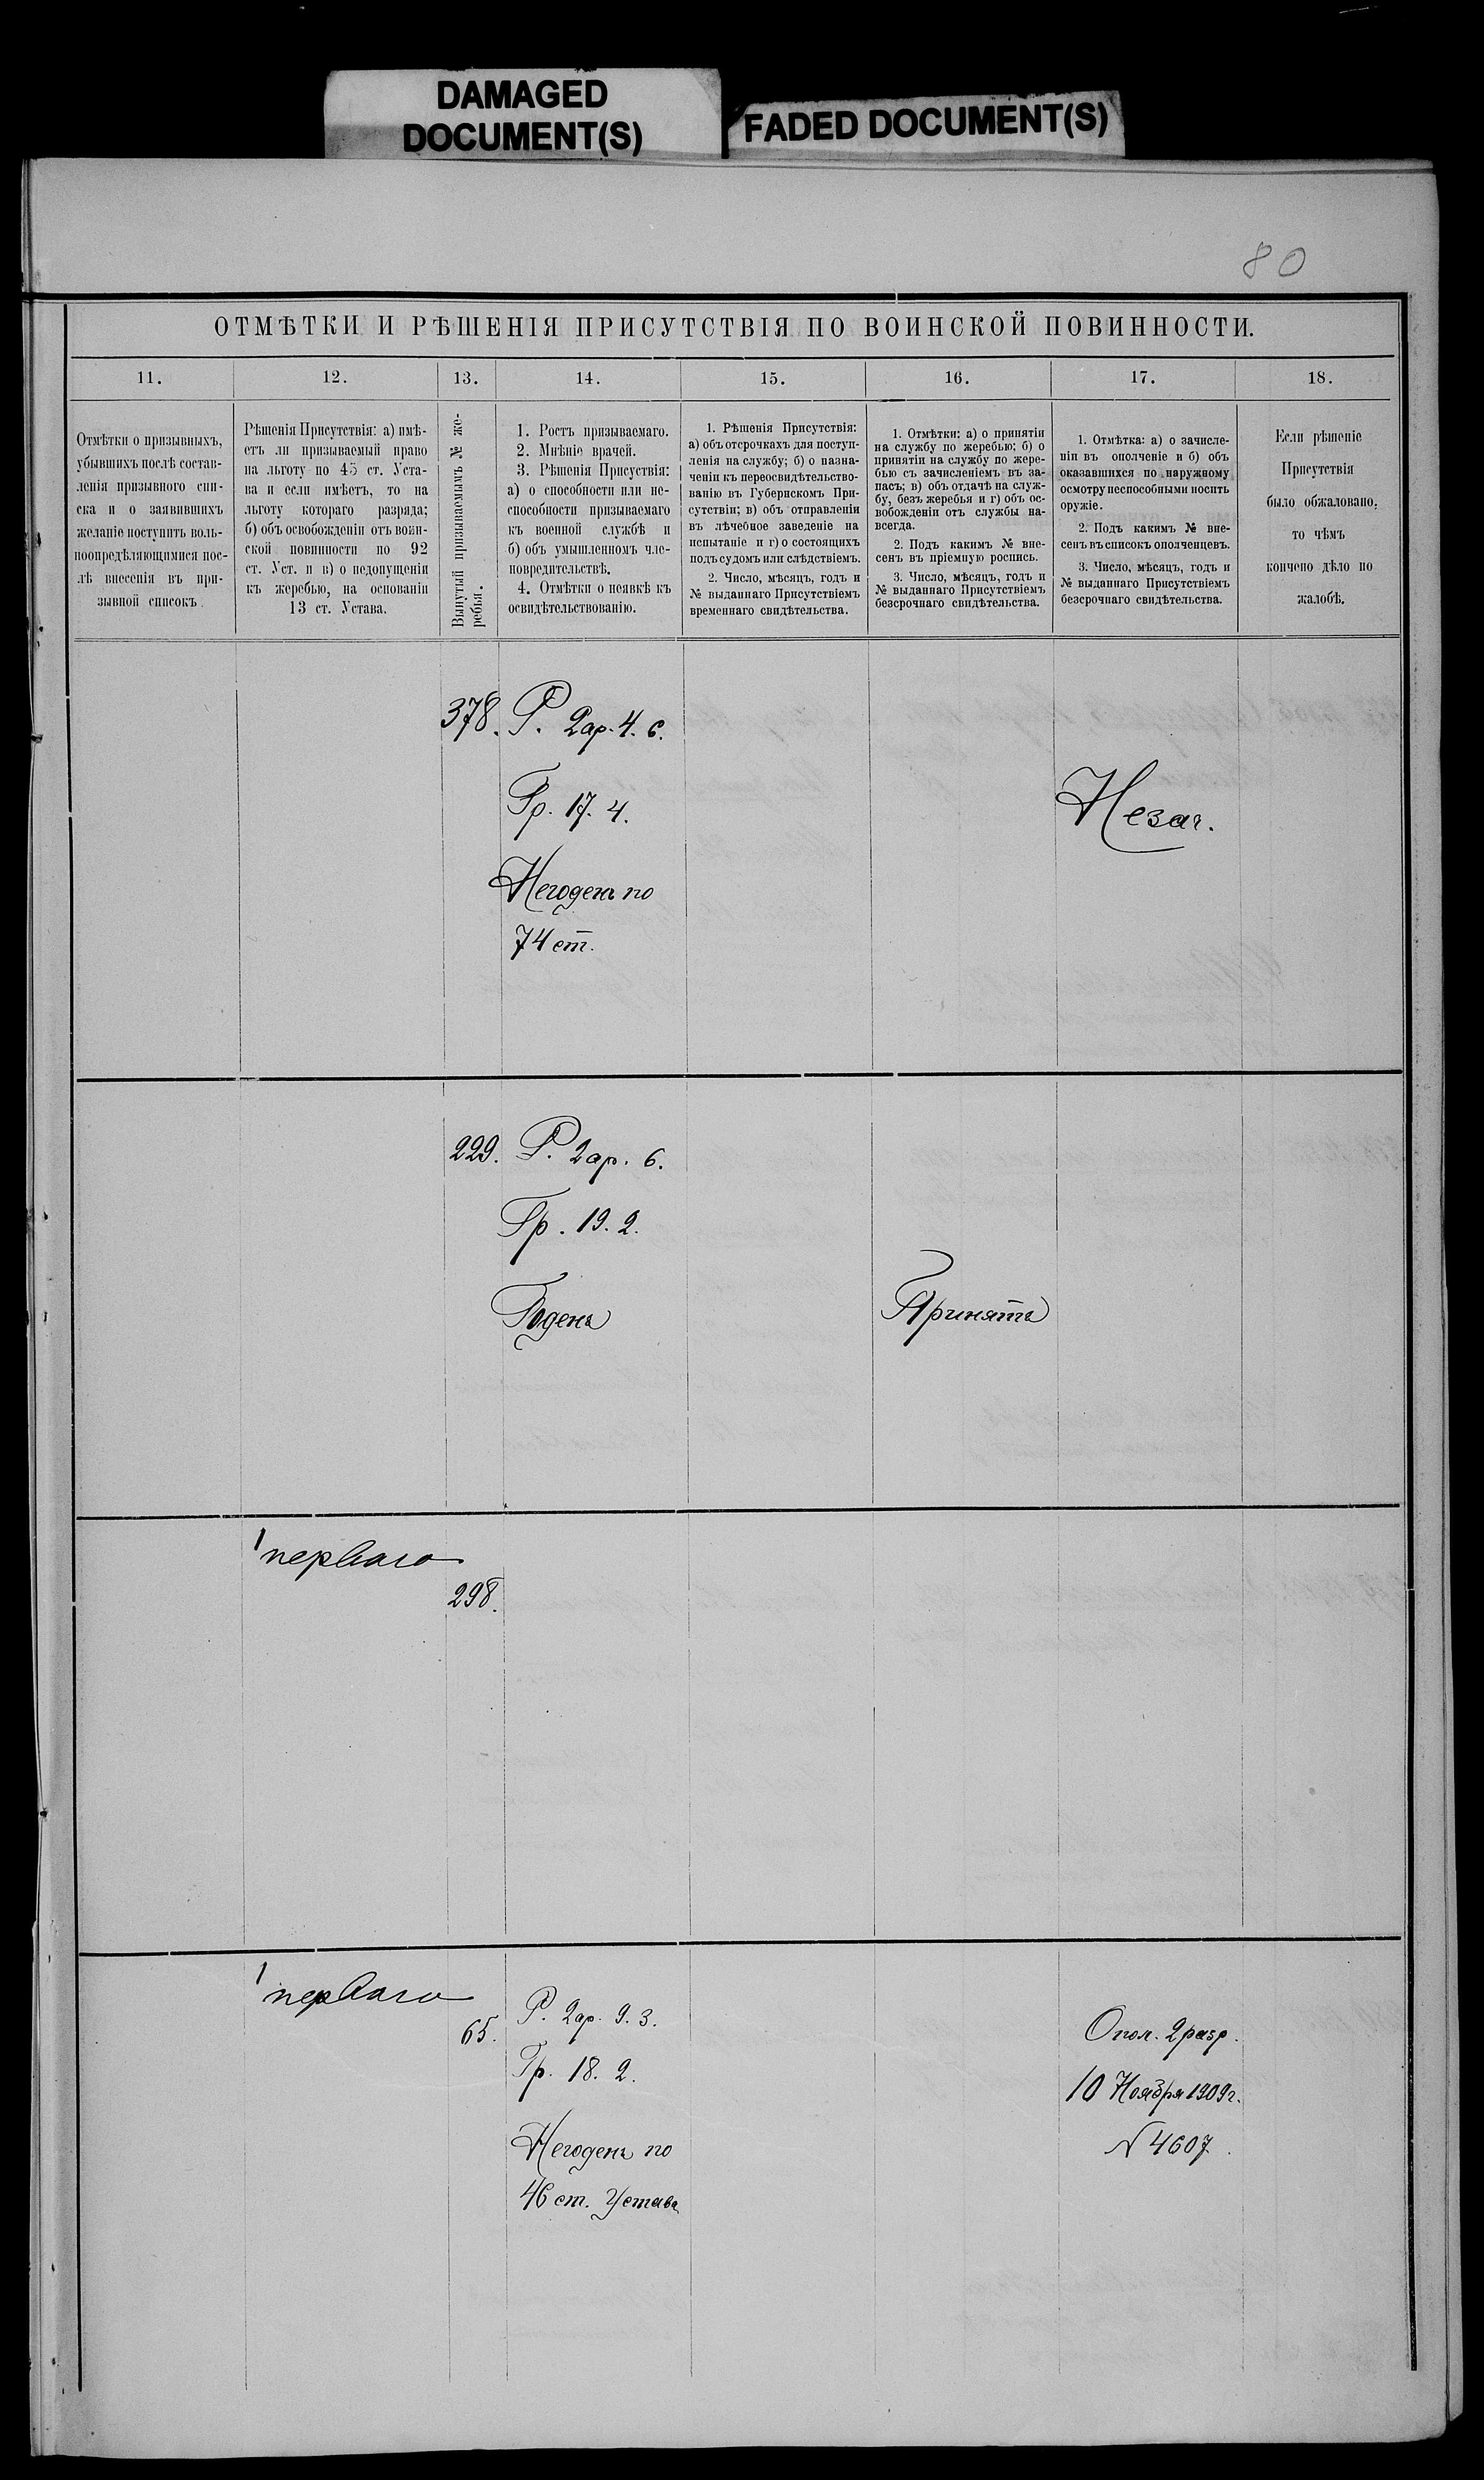 DAMAGED
DOCUMENT(S)
FADED DOCUMENT(S)
80
ОТМѢТКИ И РѢШЕНІЯ ПРИСУТСТВІЯ ПО ВОИНСКОЙ ПОВИННОСТИ.
11.
12.
13.
14.
15.
16.
17.
18.
Отмѣтки о призывныхъ,
убывшихъ послѣ состав-
ленія призывного спи-
ска и о заявившихъ
желаніе поступить воль-
ноопредѣляющимися пос-
лѣ внесенія въ при-
зывной списокъ.
Рѣшенія Присутствія: а) имѣ-
етъ ли призываемый право
на льготу по 45 ст. Уста-
ва и если имѣетъ, то на
льготу котораго разряда;
б) объ освобожденіи отъ воин-
ской повинности по 92
ст. Уст. и в) о недопущеніи
къ жеребью, на основаніи
13 ст. Устава.
Вынутый призываемымъ № же-
ребья.
1. Ростъ призываемаго.
2. Мнѣніе врачей.
3. Рѣшенія Присуствія:
а) о способности или не-
способности призываемаго
къ военной службѣ и
б) объ умышленномъ чле-
новредительствѣ.
4. Отмѣтки о неявкѣ къ
освидѣтельствованію.
1. Рѣшенія Присутствія:
а) объ отсрочкахъ для поступ-
ленія на службу; б) о назна-
ченіи къ переосвидѣтельство-
ванію въ Губернскомъ При-
сутствіи; в) объ отправленіи
въ лѣчебное заведеніе на
испытаніе и г) о состоящихъ
подъ судомъ или слѣдствіемъ.
2. Число, мѣсяцъ, годъ и
№ выданнаго Присутствіемъ
временнаго свидѣтельства.
1. Отмѣтки: а) о принятіи
на службу по жеребью; б) о
принятіи на службу по жере-
бью съ зачисленіемъ въ за-
пасъ; в) объ отдачѣ на служ-
бу, безъ жеребья и г) объ ос-
вобожденіи отъ службы на-
всегда.
2. Подъ какимъ № вне-
сенъ въ пріемную роспись.
3. Число, мѣсяцъ, годъ и
№ выданнаго Присутствіемъ
безсрочнаго свидѣтельства.
1. Отмѣтка: а) о зачисле-
ніи въ ополченіе и б) объ
оказавшихся по наружному
осмотру неспособными носить
оружіе.
2. Подъ какимъ № вне-
сенъ въ списокъ ополченцевъ.
3. Число, мѣсяцъ, годъ и
№ выданнаго Присутствіемъ
безсрочнаго свидѣтельства.
Если рѣшеніе
Присутствія
было обжаловано,
то чѣмъ
кончено дѣло по
жалобѣ.
378. Р. 2 ар. 4. с.
Гр. 17. 4.
Негоденъ по
74 ст.
Незач.
229. Р. 2 ар. 6.
Гр. 19. 2.
Годенъ
Принятъ
1 перваго
298.
1 перваго
65.
Р. 2 ар. 9. 3.
Гр. 18. 2.
Негоденъ по
46 ст. Устава
Опол. 2 разр.
10 Ноября 1909 г.
N 4607.